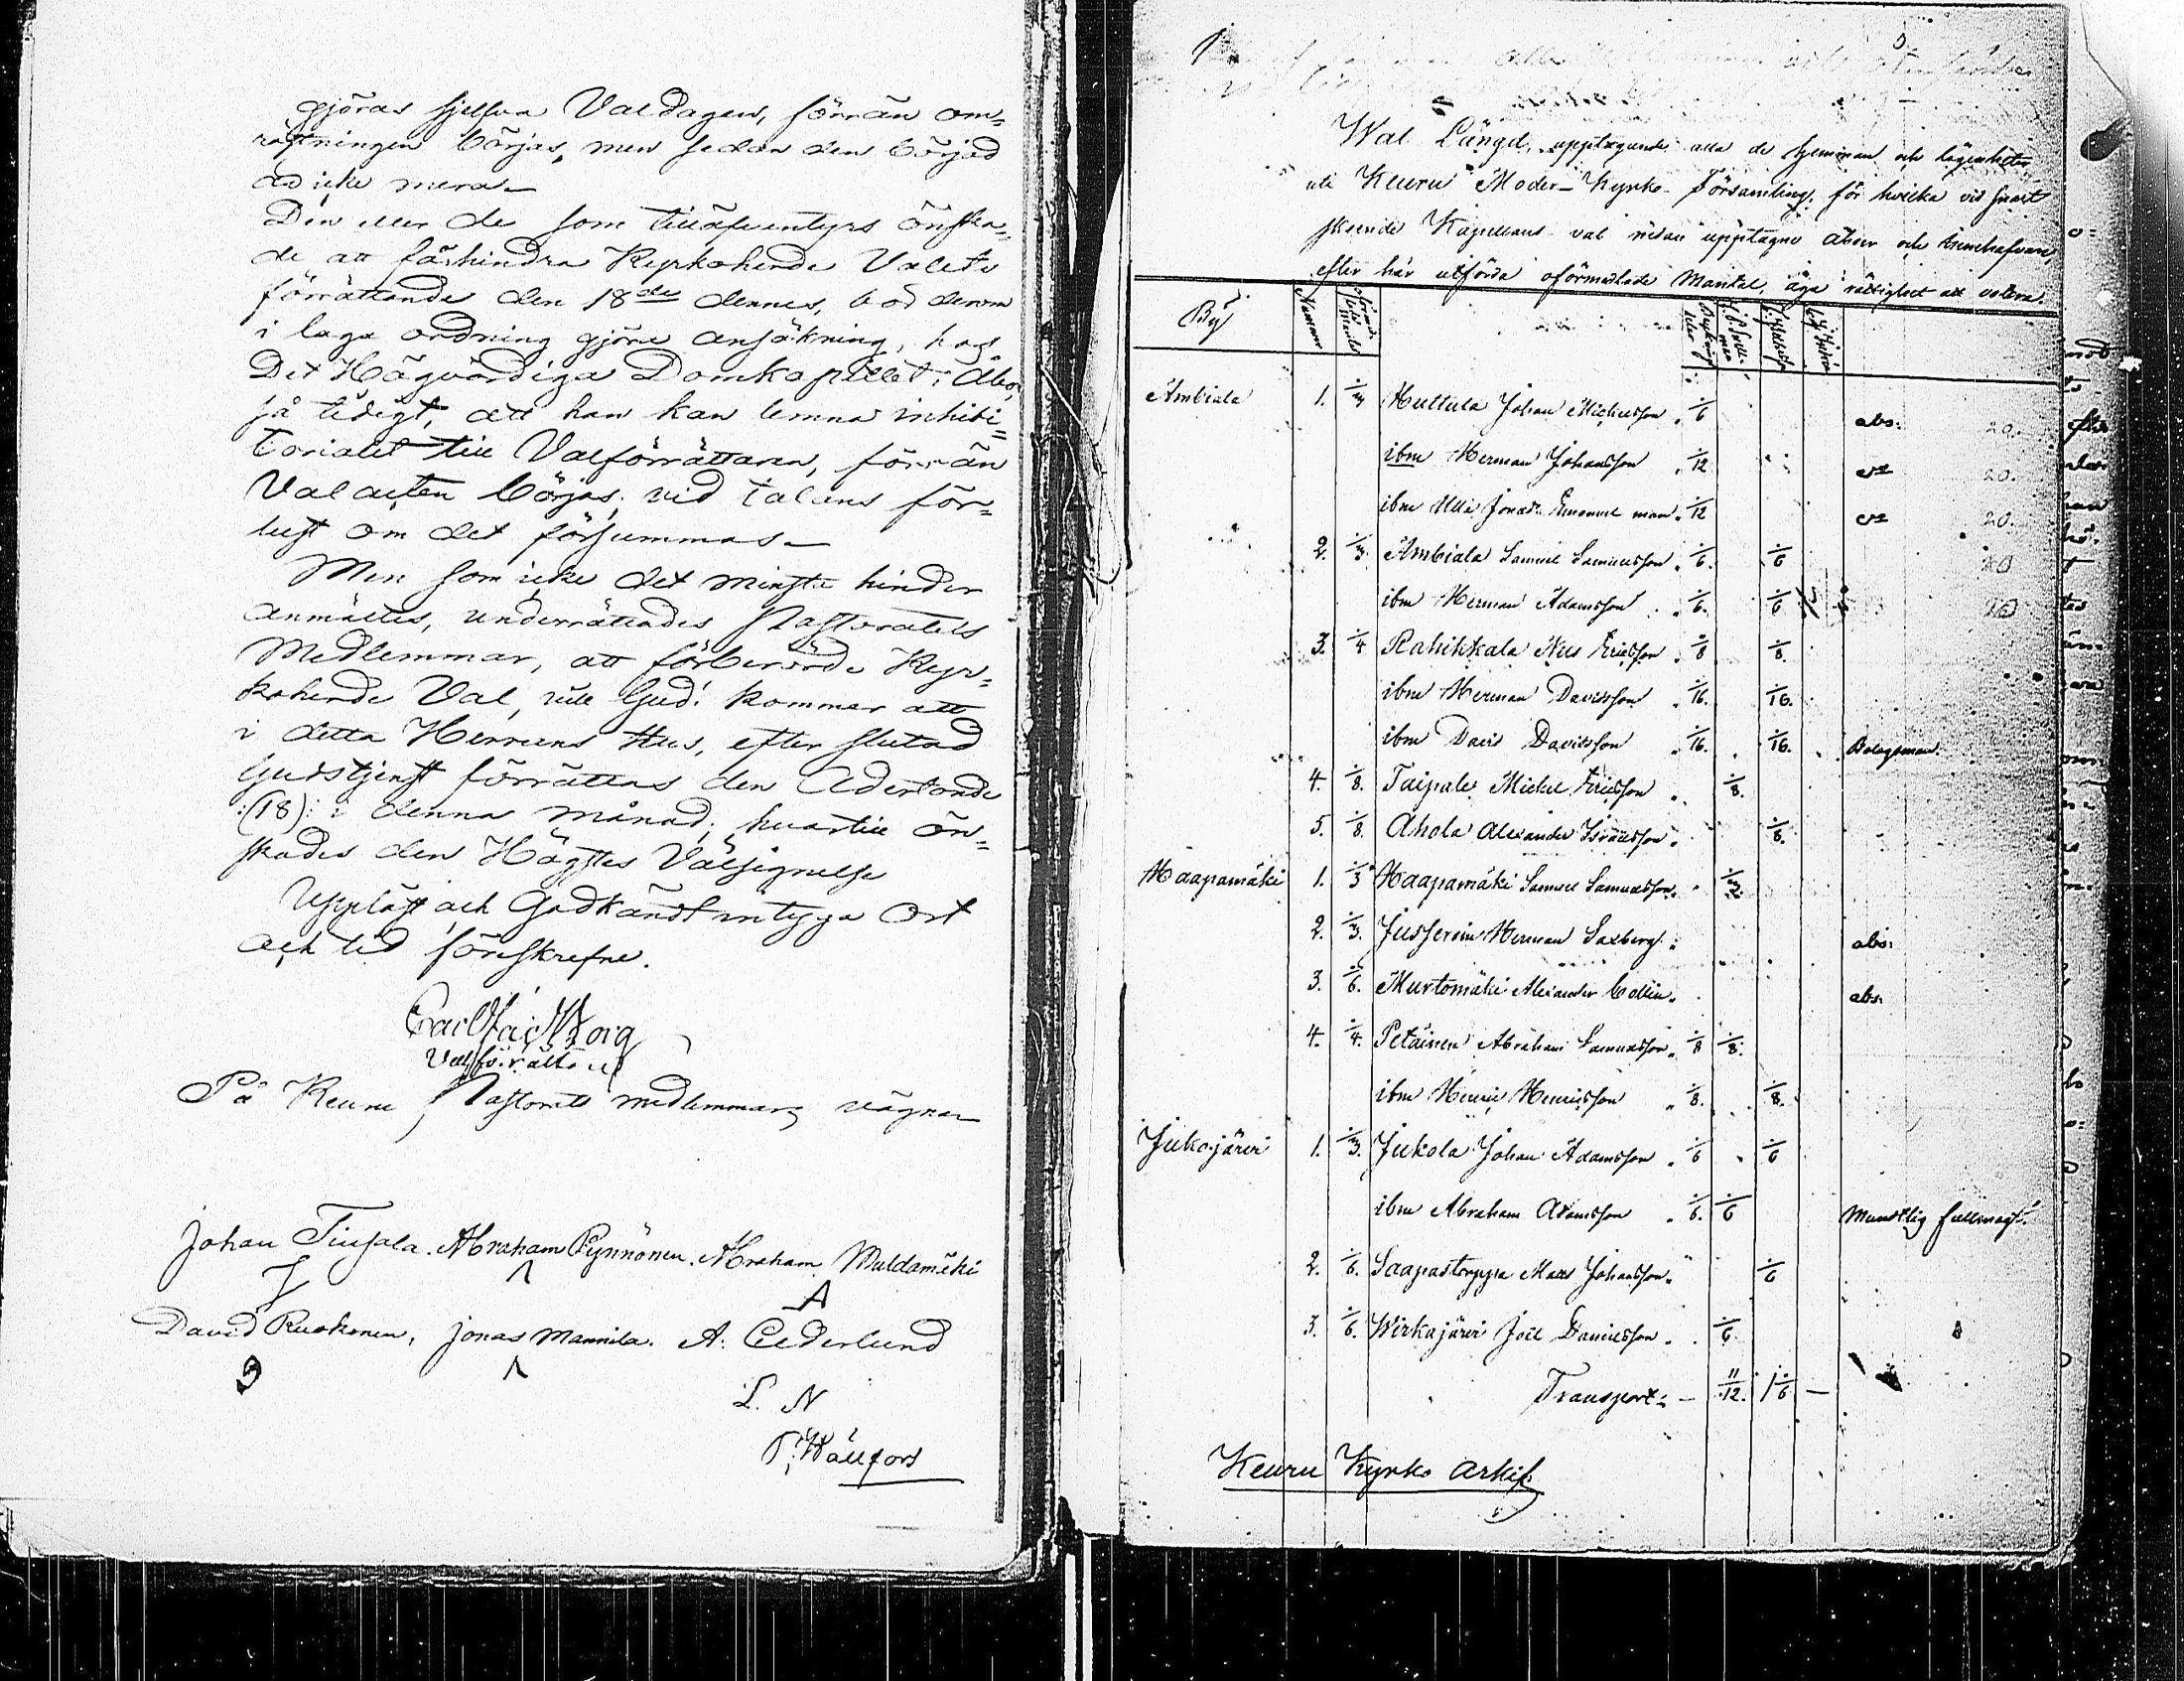 gjöras sjelfva Valdagen, förrän om-
röstningen börjas, men sedan den börjad
är icke mera.
Den eller de som tilläfventyrs önska-
de att förhindra Kyrkoherde Valets
förrättande den 18de dennes, bör derom
i laga ordning göra ansökning, hos
Det Högvördiga Domkapitlet i Åbo,
så tidigt, att han kan lemna inhibi-
torialet till Valförrättaren, förrän
Valacten börjas, vid talans för-
lust om det försummas.
Men som icke det minsta hinder
anmältes, underrättades Pastoratets
Medlemmar, att förberörde Kyr-
koherde Val, vill Gud! kommer att
i detta Herrans Hus, efter slutad
Gudstjenst förrättas den Adertonde
:(18): i denna månad; hvartill ön-
skades den Högstes Välsignelse
Uppläst och Godkändt intyga Ort
och tid föreskrefne.
Valförrättare
På Keuru Pastorats medlemmars vägnar
Johan Tiusala. Abraham Pynnönen. Abraham Muldamäki
David Ruokonen, Jonas Mannila. A: Cederlund
L. N
P. Wällfors
Wal Längd, upptagande alla de hemman och lägenheter
uti Keuru Moder-Kyrko-Församling, för hvilka vid snart
skeende Kapellans val nedan upptagne åboer och innehafvare,
efter här utförda oförmedlade Mantal, äga rättighet att votera.
By Nummer
Ambiala 1. 1/3 Huttula Johan Michelsson 1/6 abs: 20.
ibm Herman Johansson 1/12 20.
ibm Ulla Jonasd. Emanuel man 1/12 20.
2. 1/3 Ambiala Samuel Samuelsson 1/6. 1/6 20
ibm Herman Adamsson 1/6. 1/6
3. 1/4 Rahikkala Nils Ericsson 1/8 1/8.
ibm Herman Davidsson 1/16. 1/16.
ibm David Davidsson 1/16. 1/16. Bolagsman.
4. 1/8. Taipale Michel Ericsson 1/8.
5. 1/8. Ahola Alexander Israelsson 1/8.
Haapamäki 1. 1/3 Haapamäki Samuel Samuelsson 1/3.
2. 1/3. Herman Saxberg abs:
3. 1/6. Murtomäki Alexander Collin abs.
4. 1/4. Petäinen Abraham Samuelsson 1/8 1/8.
ibm Henric Henricsson 1/8. 1/8.
Jukojärvi 1. 1/3. Jukola Johan Adamsson 1/6 1/6
ibm Abraham Adamsson 1/6. 1/6 Muntlig fullmagt.
2. 1/6. Saapastorppa Mats Johansson 1/6
3. 1/6. Wirkajärvi Joel Danielsson 1/6.
Transport: — 11/12. 1 1/6 —
Keuru Kyrko Arkif